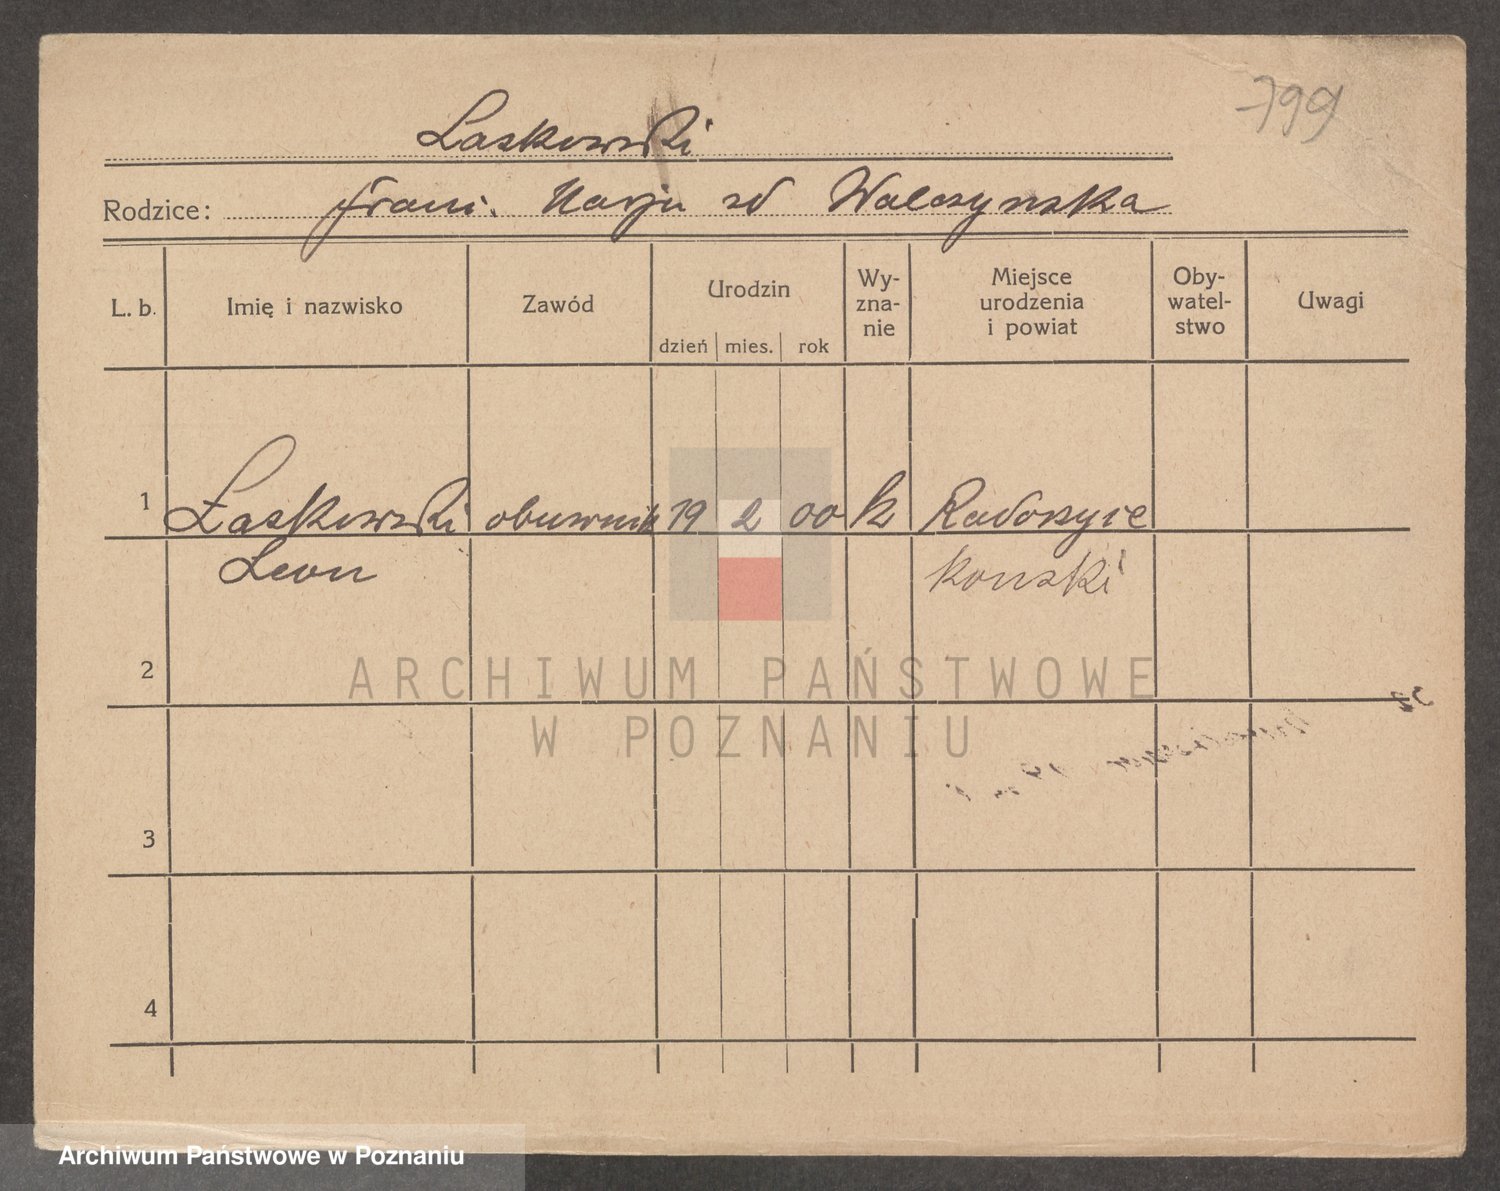 799
Laskowski
Rodzice: Frani. Marja zd Walczynska
L. b. Imię i nazwisko Zawód Urodzin dzień mies. rok Wy-zna-nie Miejsce urodzenia i powiat Oby-watel-stwo Uwagi
1 Łaskowski obuwnik 19 2 00 k Radoszyce
Leon konski
2
ARCHIWUM PAŃSTWOWE
W POZNANIU
3
4
Archiwum Państwowe w Poznaniu